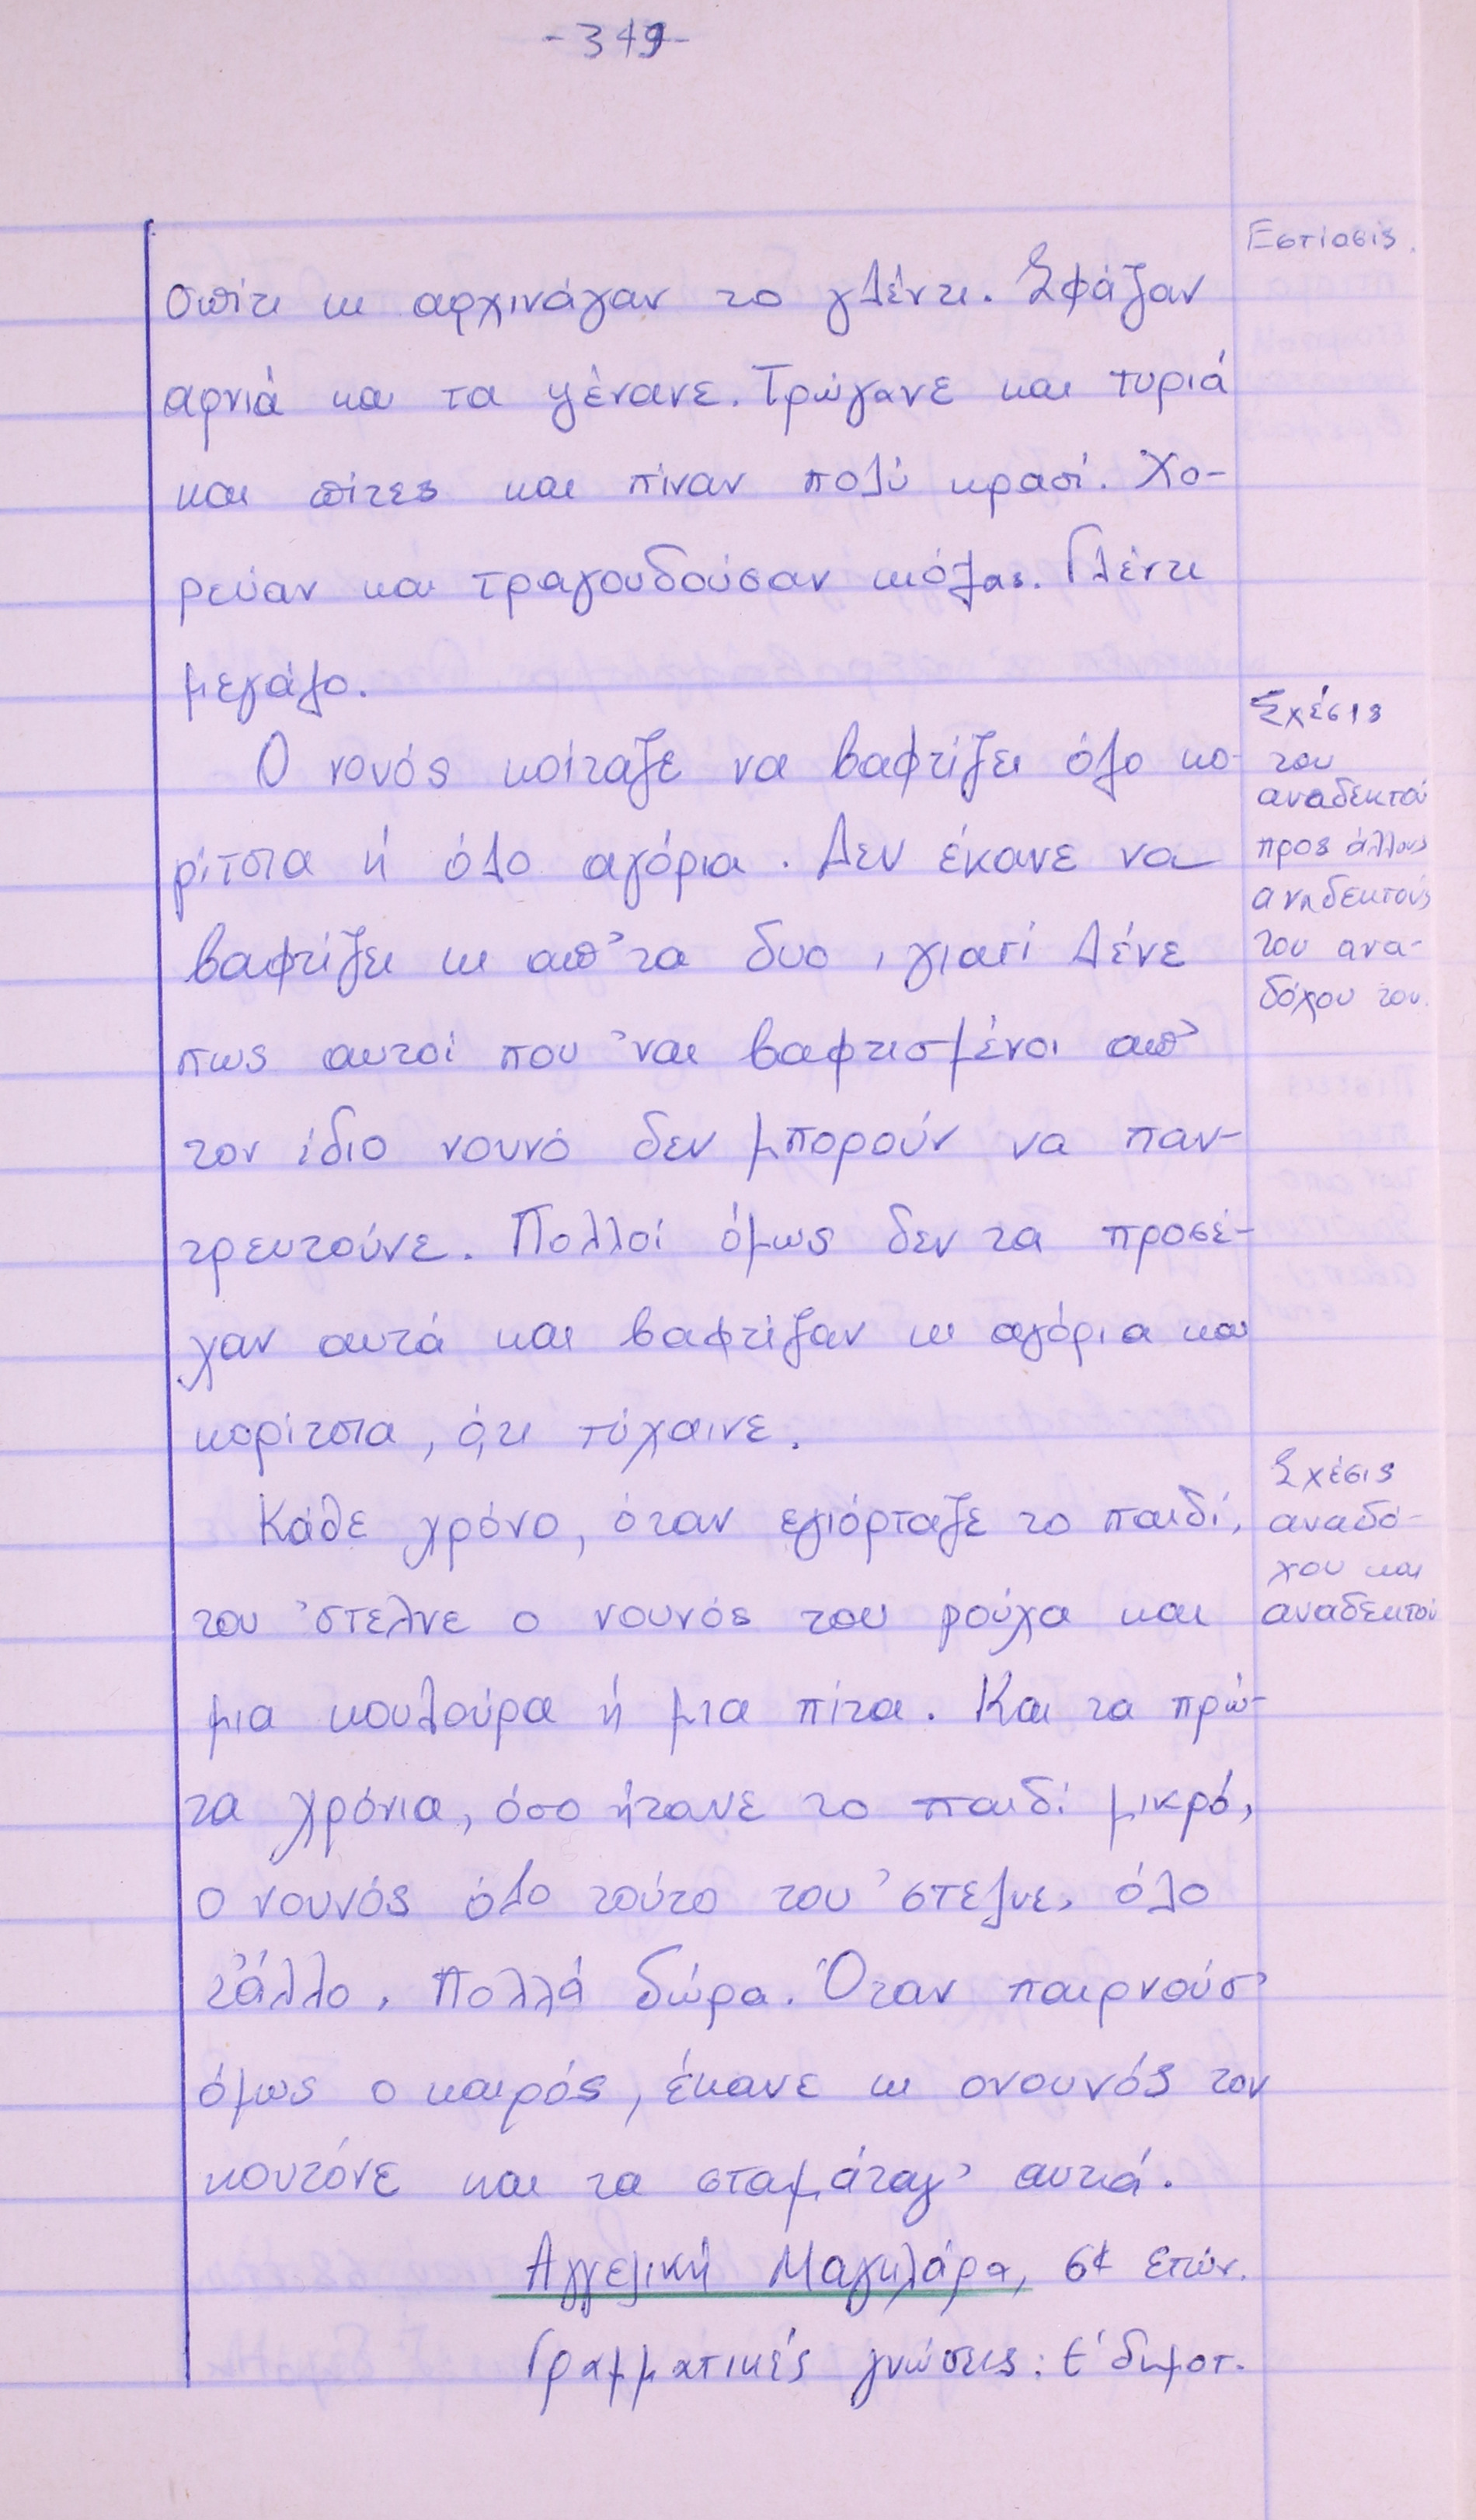 -349-
Εστίασις.
σπίτι κι αρχινάγαν το γλέντι. Σφάζαν
αρνιά και τα ψένανε. Τρώγανε και τυριά
και πίτες και πίναν πολύ κρασί. Χο-
ρεύαν και τραγουδούσαν κιόλας. Γλέντι
μεγάλο.
Ο νονός κοίταζε να βαφτίζει όλο κο-
ρίτσια ή όλο αγόρια. Δεν έκανε να
βαφτίζει κι απ' τα δυο, γιατί λένε
πως αυτοί που 'ναι βαφτισμένοι απ'
τον ίδιο νουνό δεν μπορούν να παν-
τρευτούνε. Πολλοί όμως δεν τα προσέ-
χαν αυτά και βαφτίζαν κι αγόρια και
κορίτσια, ό,τι τύχαινε.
Σχέσις
του
αναδεκτού
προς άλλους
αναδεκτούς
του ανα-
δόχου του.
Κάθε χρόνο, όταν εγιόρταζε το παιδί,
του 'στελνε ο νουνός του ρούχα και
μια κουλούρα ή μια πίτα. Και τα πρώ-
τα χρόνια, όσο ήτανε το παιδί μικρό,
ο νουνός όλο τούτο του 'στελνε, όλο
τ' άλλο. Πολλά δώρα. Όταν παιρνούσ'
όμως ο καιρός, έκανε κι ονουνός τον
κουτόνε και τα σταμάταγ' αυτά.
Σχέσις
αναδό-
χου και
αναδεκτού
Αγγελική Μαγκλάρα, 64 ετών.
Γραμματικές γνώσεις: έ δημοτ.